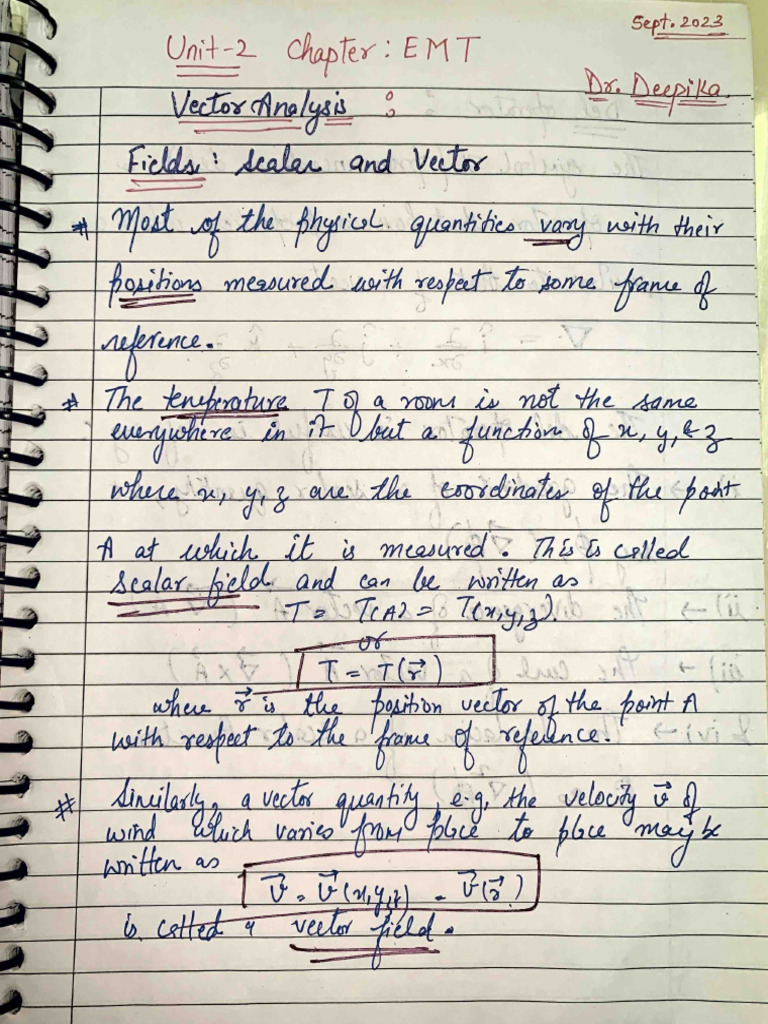 Sept. 2023
Unit-2 Chapter: EMT
Dr. Deepika.
Vector Analysis :
Fields: Scalar and Vector
# Most of the physical quantities vary with their
positions measured with respect to some frame of
reference.
# The temperature T of a room is not the same
everywhere in it but a function of x, y, & z
where x, y, z are the coordinates of the point
A at which it is measured. This is called
scalar field and can be written as
T = T(A) = T(x,y,z).
or
T = T(r⃗)
where r⃗ is the position vector of the point A
with respect to the frame of reference.
# Similarly, a vector quantity, e.g, the velocity v⃗ of
wind which varies from place to place may be
written as
v⃗ = v⃗(x,y,z) = v⃗(r⃗)
is called a vector field.